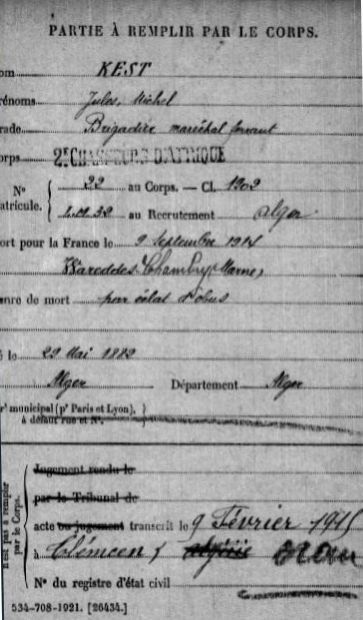 PARTIE À REMPLIR PAR LE CORPS.
om KEST
rénoms Jules, Michel
rade Brigadier maréchal ferrant
orps 2e CHASSEURS D'AFRIQUE
N° 22 au Corps. — Cl. 1902
atricule. au Recrutement Alger
ort pour la France le 9 Septembre 1914
Wareddes Chambry Marne
enre de mort par éclat d'obus
é le 29 Mai 1882
Alger Département Alger
r' municipal (pr Paris et Lyon),
à défaut rue et N°.
Jugement rendu le
par le Tribunal de
acte ou jugement transcrit le 9 Février 1915
à Clémcen Algérie Oran
N° du registre d'état civil
n'est pas à remplir
par le Corps.
534-708-1921. [26434.]